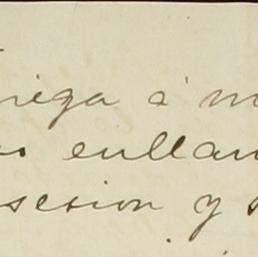 rega á m
os eullan
sesion y s